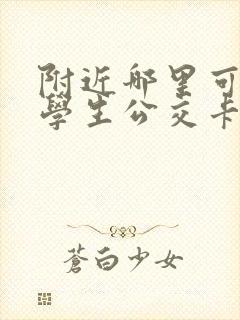 附近哪里可
學生公交卡
蒼白少女